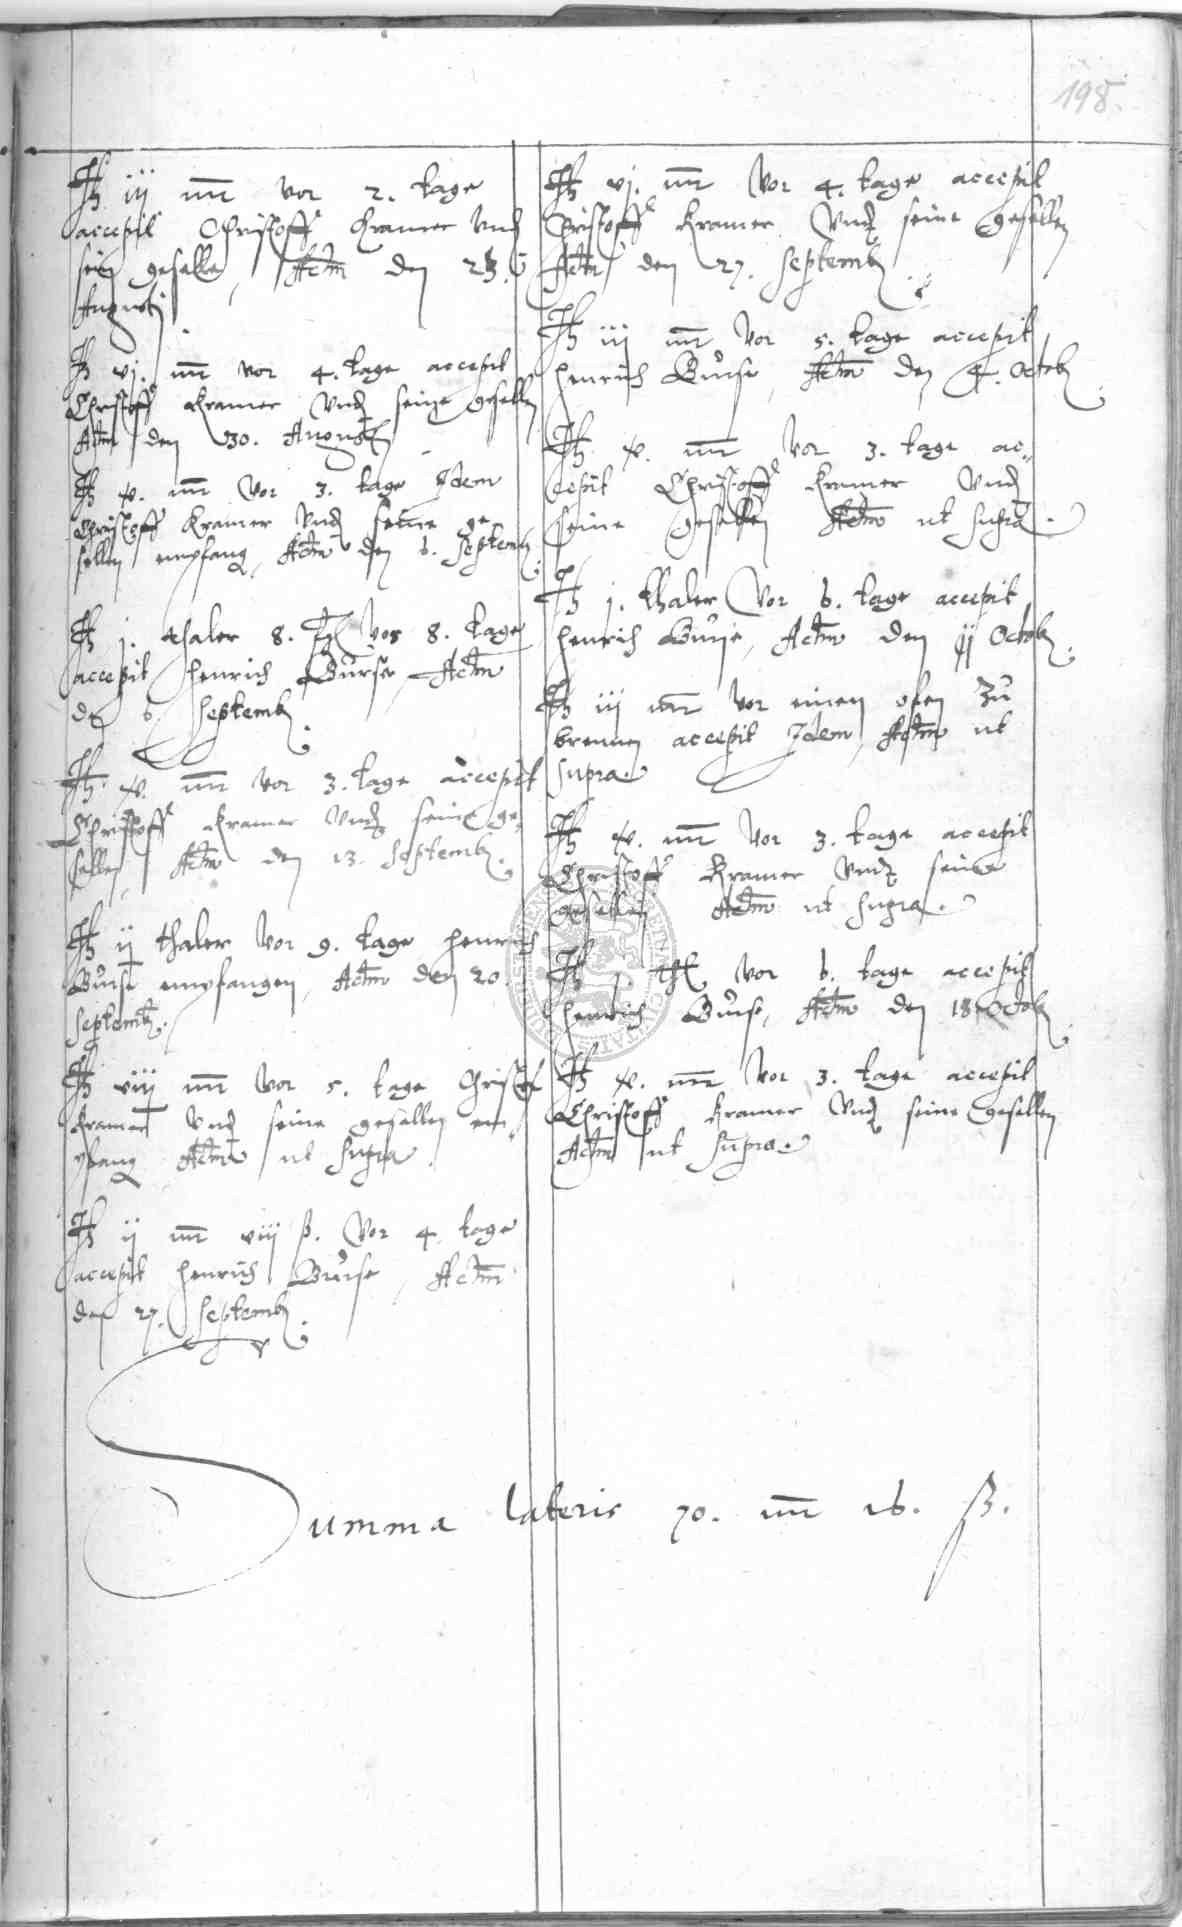 198.
Itz iij mr vor 2. tage
accepit Christoff Kramer vnd
sein geselle, Actm den 23.
Augusti
Itz vj. mr vor 4. tage accepit
Christoff Kramer vnd seine gesellen
Actm den 30. Augusti
Itz mr vor 3. tage Idem
Christoff Kramer vnd seine ge
sellen empfang, Actm den 6. Septemb.
Itz j. thaler 8. vor 8. tage
accepit Henrich Burse, Actm
den 6. Septemb.
Itz mr vor 3. tage accepit
Christoff Kramer vnd seine ge
sellen, Actm den 13. Septemb.
Itz ij thaler vor 9. tage Henrich
Burse empfangen, Actm den 20.
Septemb.
Itz viij mr vor 5. tage Christof
Kramer vnd seine gesellen em
pfang Actm ut supra
Itz ij mr viij ß. vor 4. tage
accepit Henrich Burse, Actm
den 27. Septemb.
Itz vj. mr vor 4. tage accepit
Christoff Kramer vnd seine gesellen
Actm den 27. Septemb.
Itz iij mr vor 5. tage accepit
Henrich Burse, Actm den 4. Octob.
Itz mr vor 3. tage ac
cepit Christoff Kramer vnd
seine gesellen Actm ut supra.
Itz j. thaler vor 6. tage accepit
Henrich Burse, Actm den 11 Octob.
Itz iij mr vor einen ofen zu
brennen accepit Idem, Actm ut
supra.
Itz mr vor 3. tage accepit
Christoff Kramer vnd seine
gesellen Actm ut supra.
Itz j. vor 6. tage accepit
Henrich Burse, Actm den 18 Octob.
Itz mr vor 3. tage accepit
Christoff Kramer vnd seine gesellen
Actm ut supra.
Summa lateris 70. mr 16. ß.